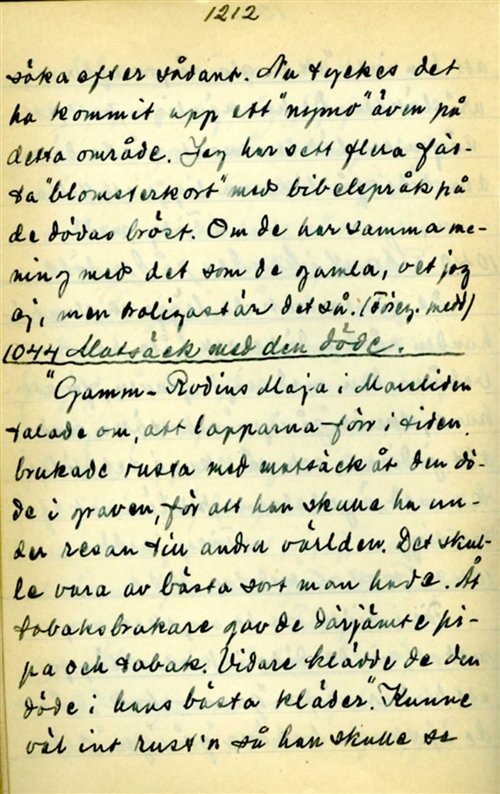 1212
söka efter sådant. Nu tyckes det
ha kommit upp ett "nymo" även på
detta område. Jag har sett flera fäs-
ta "blomsterkort" med bibelspråk på
de dödas bröst. Om de har samma me-
ning med det som de gamla, vet jag
ej, men troligast är det så. (Föreg. medd)
1044 Matsäck med den döde.
"Gamm-Rodins Maja i Marsliden
talade om, att lapparna förr i tiden
brukade rusta med matsäck åt den dö-
de i graven, för att han skulle ha un-
der resan till andra världen. Det skul-
le vara av bästa sort man hade. Åt
tobaksbrukare gav de därjämte pi-
pa och tobak. Vidare klädde de den
döde i hans bästa kläder." Kunne
väl int rust'n så han skulle se